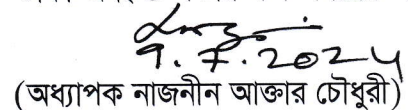 9.7.2024
(অধ্যাপক নাজনীন আক্তার চৌধুরী)